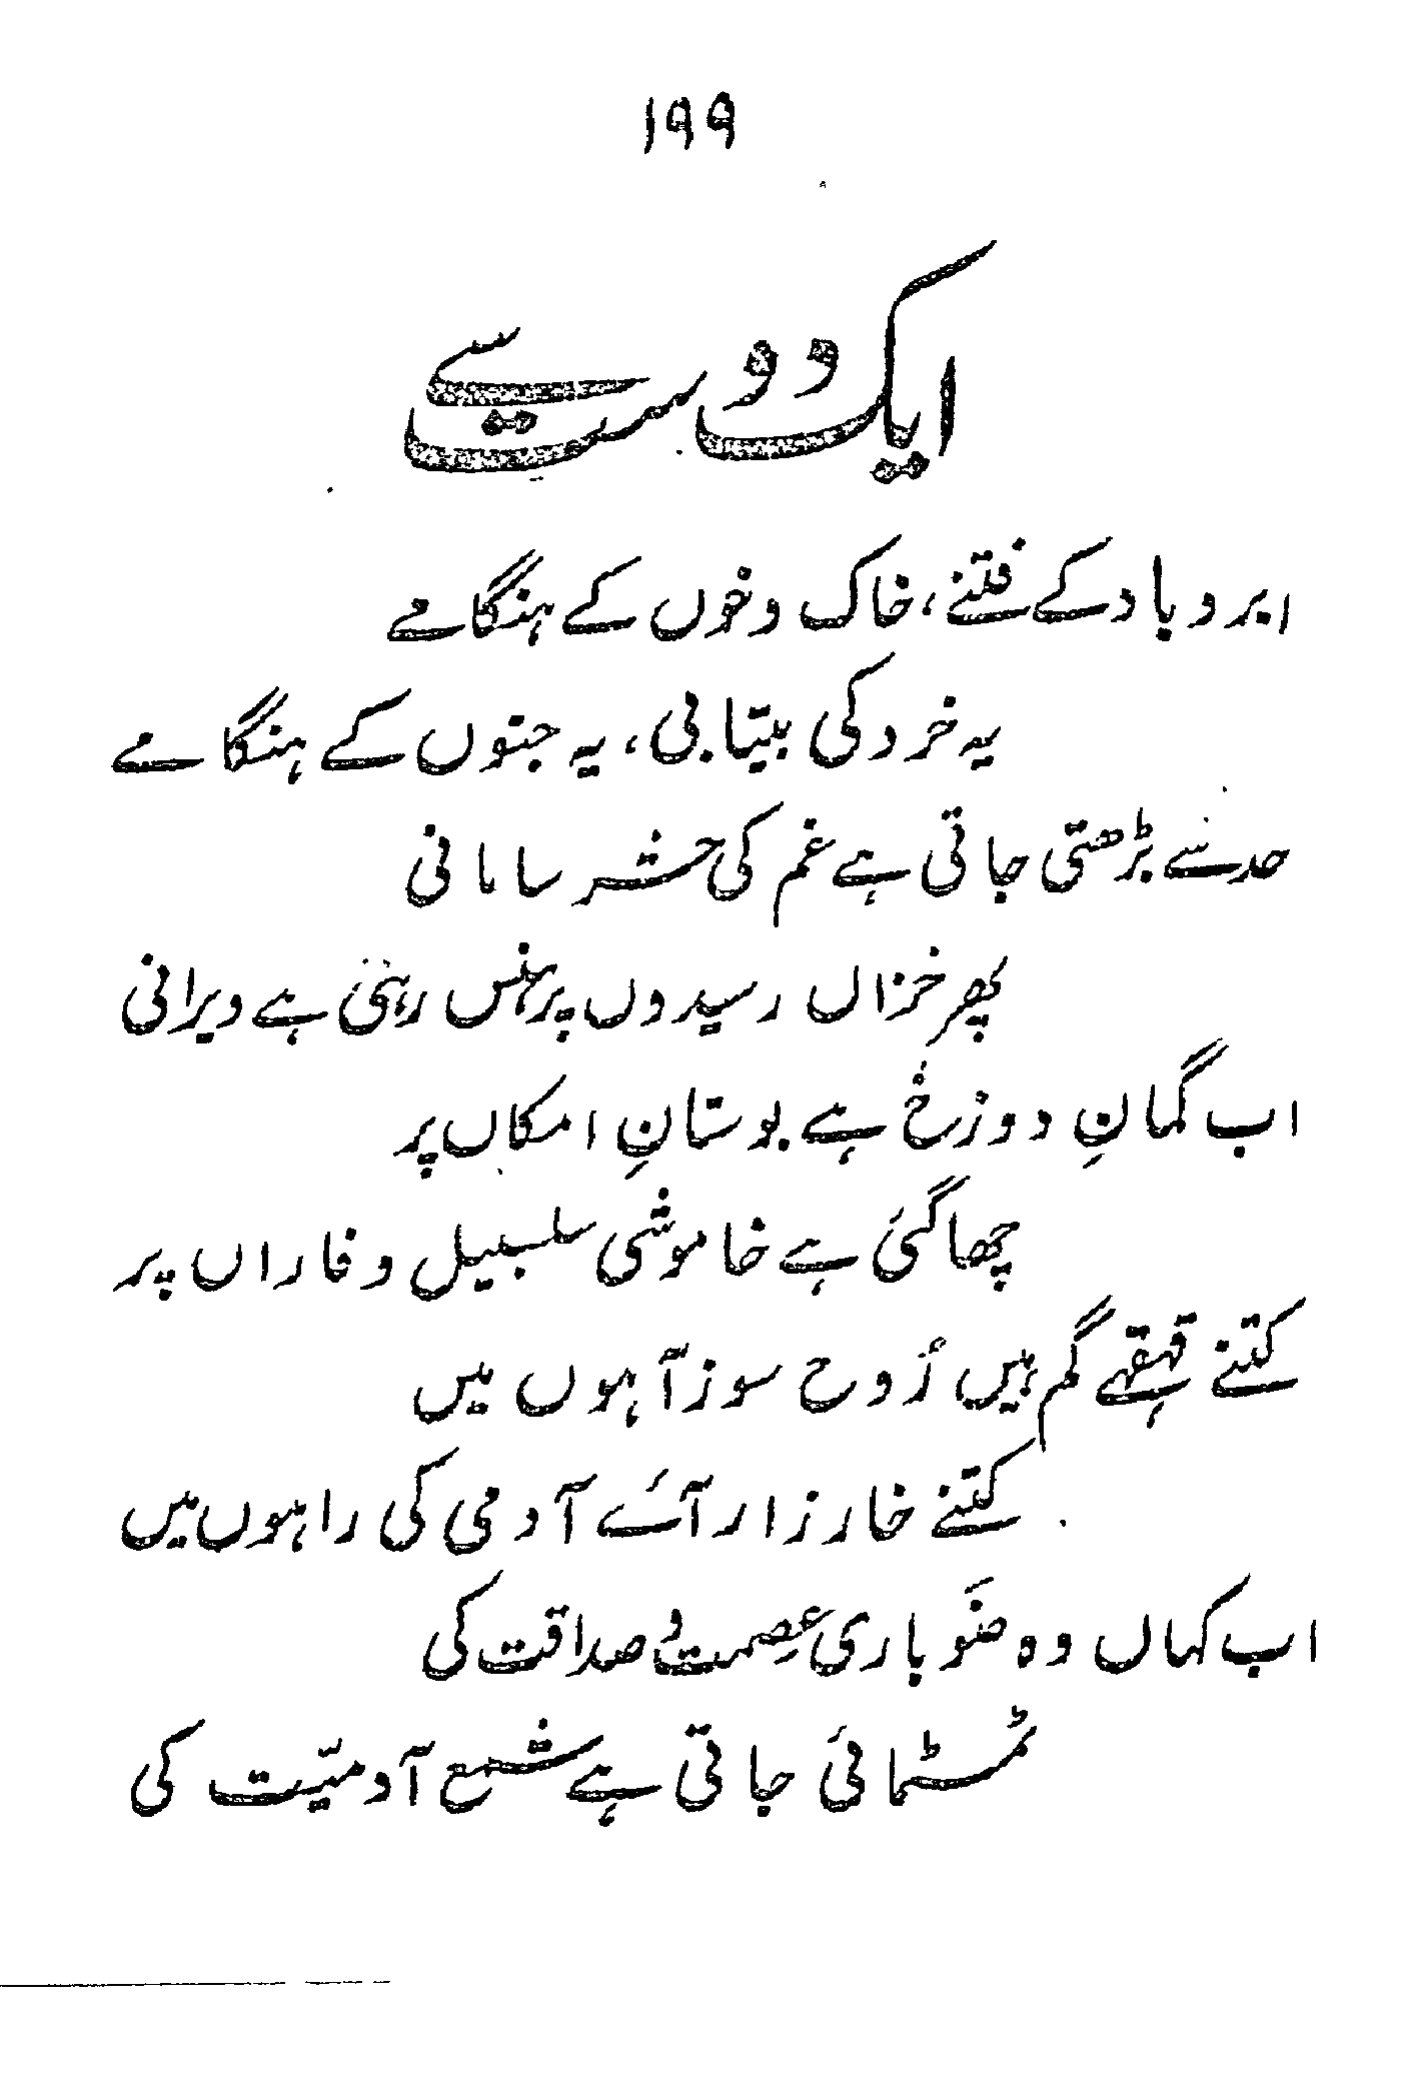 ۱۹۹
ایک دوست سے
ابر و باد کے فتنے، خاک و خوں کے ہنگامے
یہ خرد کی بیتابی، یہ جنوں کے ہنگامے
حد سے بڑھتی جاتی ہے غم کی حشر سامانی
پھر خزاں رسیدوں پر ہنس رہی ہے ویرانی
اب گمانِ دوزخ ہے بوستانِ امکاں پر
چھا گئی ہے خاموشی سلسبیل و فاراں پر
کتنے قہقہے گم ہیں رُوح سوز آہوں میں
کتنے خارزار آئے آدمی کی راہوں میں
اب کہاں وہ ضَو باری عِصمت و صداقت کی
ٹمٹمائی جاتی ہے شمع آدمیّت کی